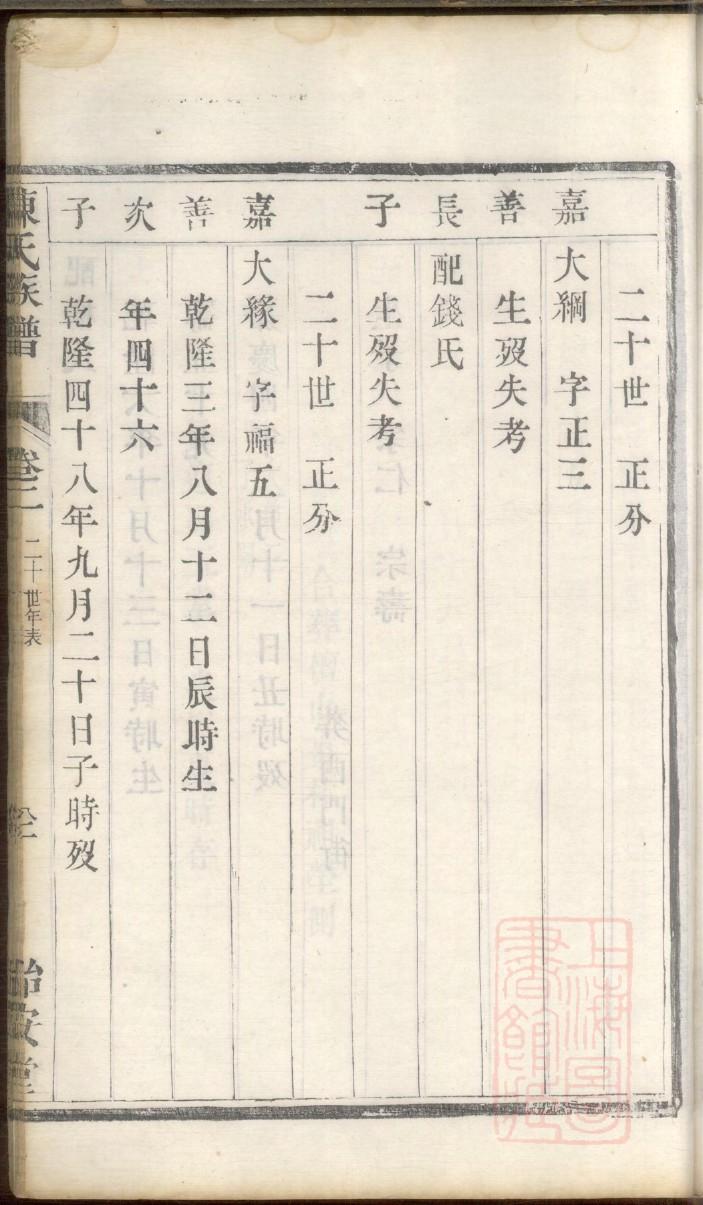 二十世　正分
嘉　大綱　字正三
善　生歿失考
長　配錢氏
子　生歿失考
二十世　正分
嘉　大緣　字福五
善　乾隆三年八月十二日辰時生
次　年四十六
子　乾隆四十八年九月二十日子時歿
陳氏族譜　卷二　二十世年表　怡安堂
上海圖書館藏